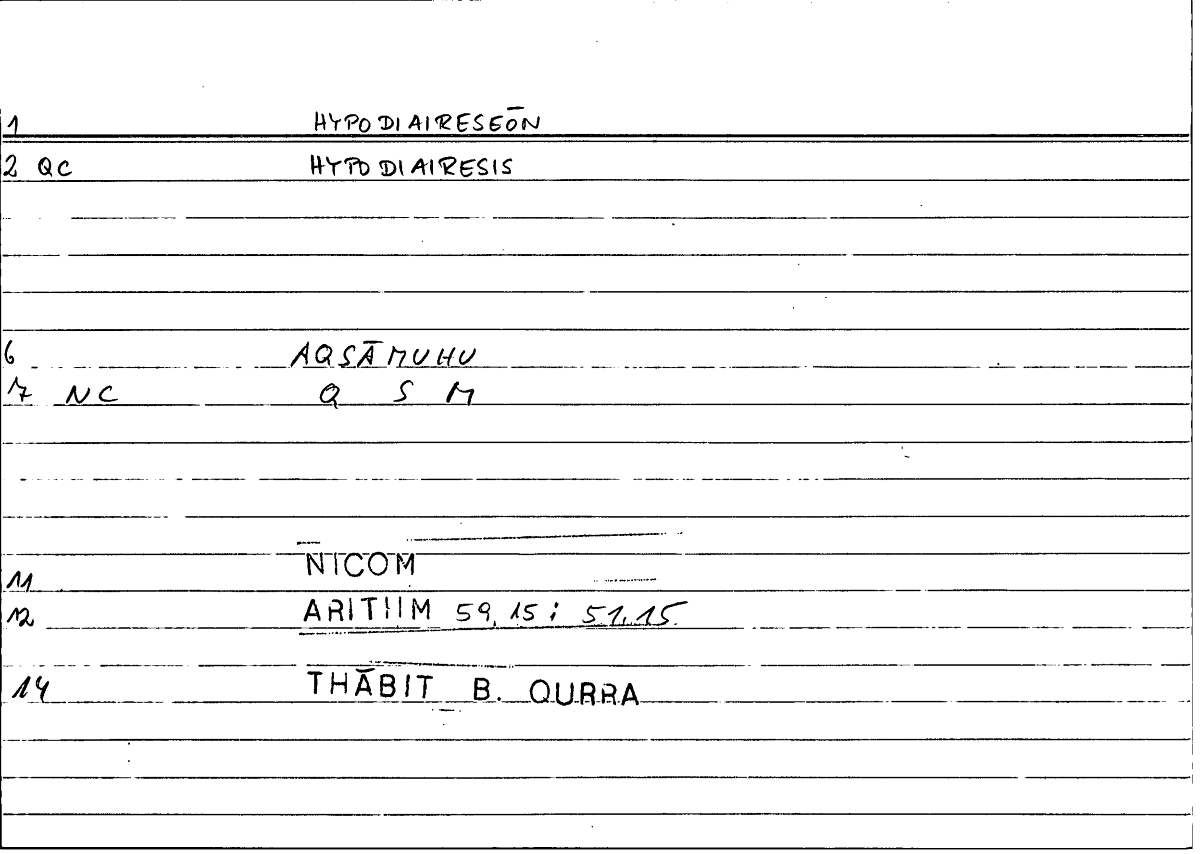 1 HYPODIAIRESEŌN
2 QC HYPODIAIRESIS
6 AQSĀMUHU
7 NC Q S M
11 NICOM
12 ARITHM 59,15; 51,15
14 THĀBIT B. QURRA